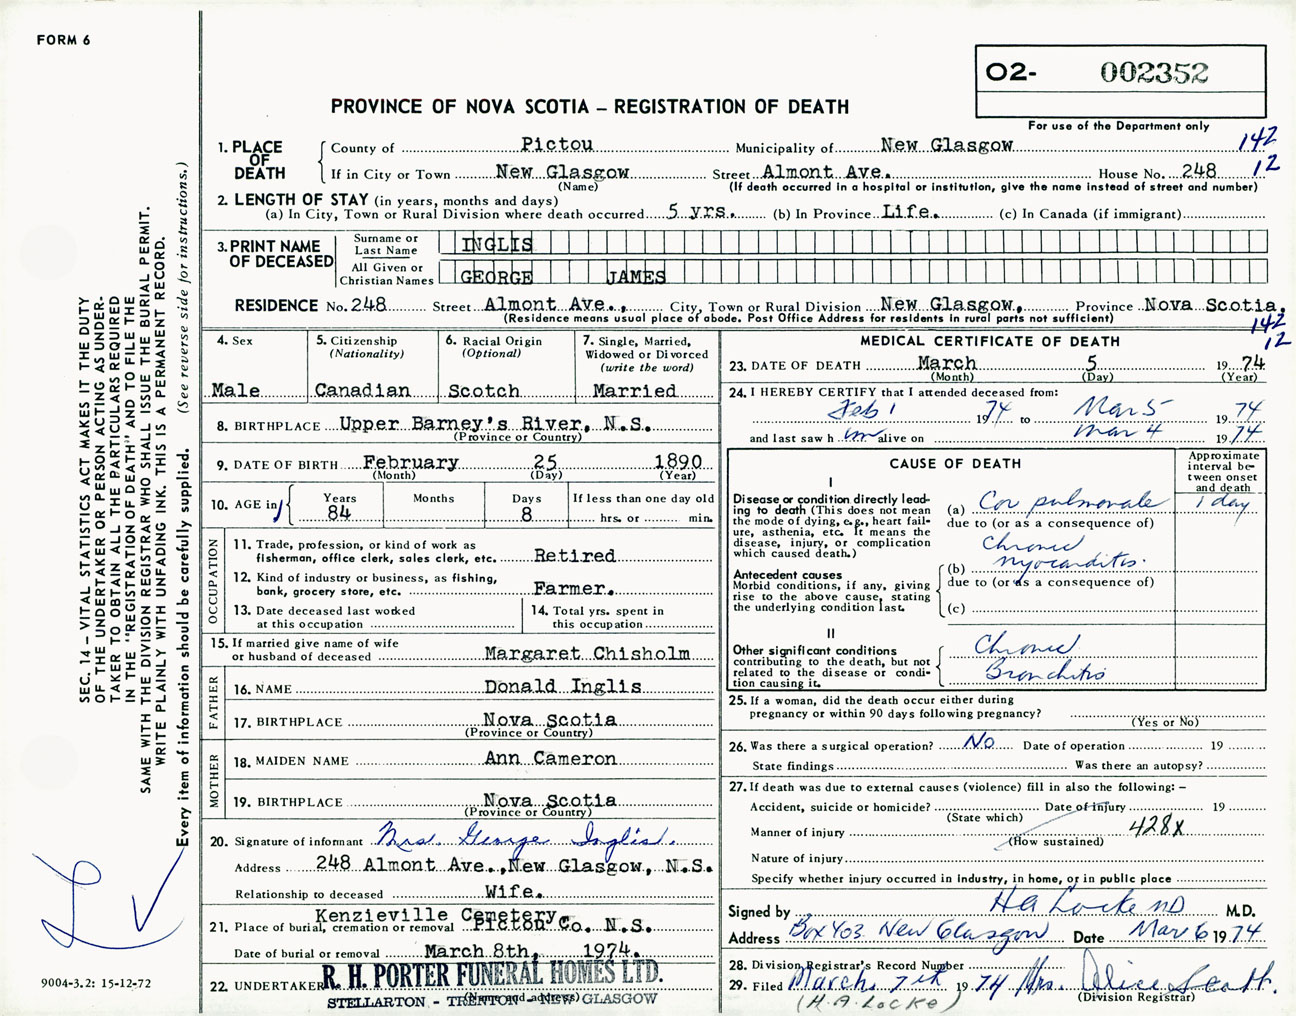 FORM 6
O2- 002352
PROVINCE OF NOVA SCOTIA – REGISTRATION OF DEATH
For use of the Department only
1. PLACE OF DEATH
County of Pictou Municipality of New Glasgow 142
If in City or Town New Glasgow Street Almont Ave. House No. 248 12
(Name) (If death occurred in a hospital or institution, give the name instead of street and number)
2. LENGTH OF STAY (in years, months and days)
(a) In City, Town or Rural Division where death occurred 5 yrs. (b) In Province Life. (c) In Canada (if immigrant)
3. PRINT NAME OF DECEASED
Surname or Last Name INGLIS
All Given or Christian Names GEORGE JAMES
RESIDENCE No. 248 Street Almont Ave., City, Town or Rural Division New Glasgow, Province Nova Scotia.
(Residence means usual place of abode. Post Office Address for residents in rural parts not sufficient) 142
12
4. Sex
Male
5. Citizenship
(Nationality)
Canadian
6. Racial Origin
(Optional)
Scotch
7. Single, Married,
Widowed or Divorced
(write the word)
Married
8. BIRTHPLACE Upper Barney's River, N.S.
(Province or Country)
9. DATE OF BIRTH February 25 1890
(Month) (Day) (Year)
10. AGE in
Years Months Days If less than one day old
84 8 hrs. or min.
OCCUPATION
11. Trade, profession, or kind of work as
fisherman, office clerk, sales clerk, etc. Retired
12. Kind of industry or business, as fishing,
bank, grocery store, etc. Farmer.
13. Date deceased last worked
at this occupation
14. Total yrs. spent in
this occupation
15. If married give name of wife
or husband of deceased Margaret Chisholm
FATHER
16. NAME Donald Inglis
17. BIRTHPLACE Nova Scotia
(Province or Country)
MOTHER
18. MAIDEN NAME Ann Cameron
19. BIRTHPLACE Nova Scotia
(Province or Country)
20. Signature of informant Mrs. George Inglis.
Address 248 Almont Ave., New Glasgow, N.S.
Relationship to deceased Wife.
Kenzieville Cemetery,
21. Place of burial, cremation or removal Pictou Co. N.S.
Date of burial or removal March 8th, 1974.
22. UNDERTAKER R. H. PORTER FUNERAL HOMES LTD.
(Name and address)
STELLARTON - TRENTON - NEW GLASGOW
MEDICAL CERTIFICATE OF DEATH
23. DATE OF DEATH March 5 19 74
(Month) (Day) (Year)
24. I HEREBY CERTIFY that I attended deceased from:
Feb 1 1974 to Mar 5 19 74
and last saw h im alive on Mar 4 19 74
CAUSE OF DEATH
Approximate
interval be-
tween onset
and death
I
Disease or condition directly lead-
ing to death (This does not mean
the mode of dying, e.g., heart fail-
ure, asthenia, etc. It means the
disease, injury, or complication
which caused death.)
(a) Cor pulmonale 1 day
due to (or as a consequence of)
Chronic
(b) myocarditis.
due to (or as a consequence of)
(c)
Antecedent causes
Morbid conditions, if any, giving
rise to the above cause, stating
the underlying condition last.
II
Other significant conditions
contributing to the death, but not
related to the disease or condi-
tion causing it.
Chronic
Bronchitis
25. If a woman, did the death occur either during
pregnancy or within 90 days following pregnancy?
(Yes or No)
26. Was there a surgical operation? No Date of operation 19
State findings Was there an autopsy?
27. If death was due to external causes (violence) fill in also the following: –
Accident, suicide or homicide? Date of injury 19
(State which)
Manner of injury 428X
(How sustained)
Nature of injury
Specify whether injury occurred in industry, in home, or in public place
Signed by H A Locke MD M.D.
Address Box 403 New Glasgow Date Mar 6 19 74
28. Division Registrar's Record Number
29. Filed March 7th 19 74 Mrs. Alice Scott.
(H.A. LOCKE) (Division Registrar)
SEC. 14 – VITAL STATISTICS ACT MAKES IT THE DUTY
OF THE UNDERTAKER OR PERSON ACTING AS UNDER-
TAKER TO OBTAIN ALL THE PARTICULARS REQUIRED
IN THE "REGISTRATION OF DEATH" AND TO FILE THE
SAME WITH THE DIVISION REGISTRAR WHO SHALL ISSUE THE BURIAL PERMIT.
WRITE PLAINLY WITH UNFADING INK. THIS IS A PERMANENT RECORD.
Every item of information should be carefully supplied. (See reverse side for instructions.)
9004-3.2: 15-12-72